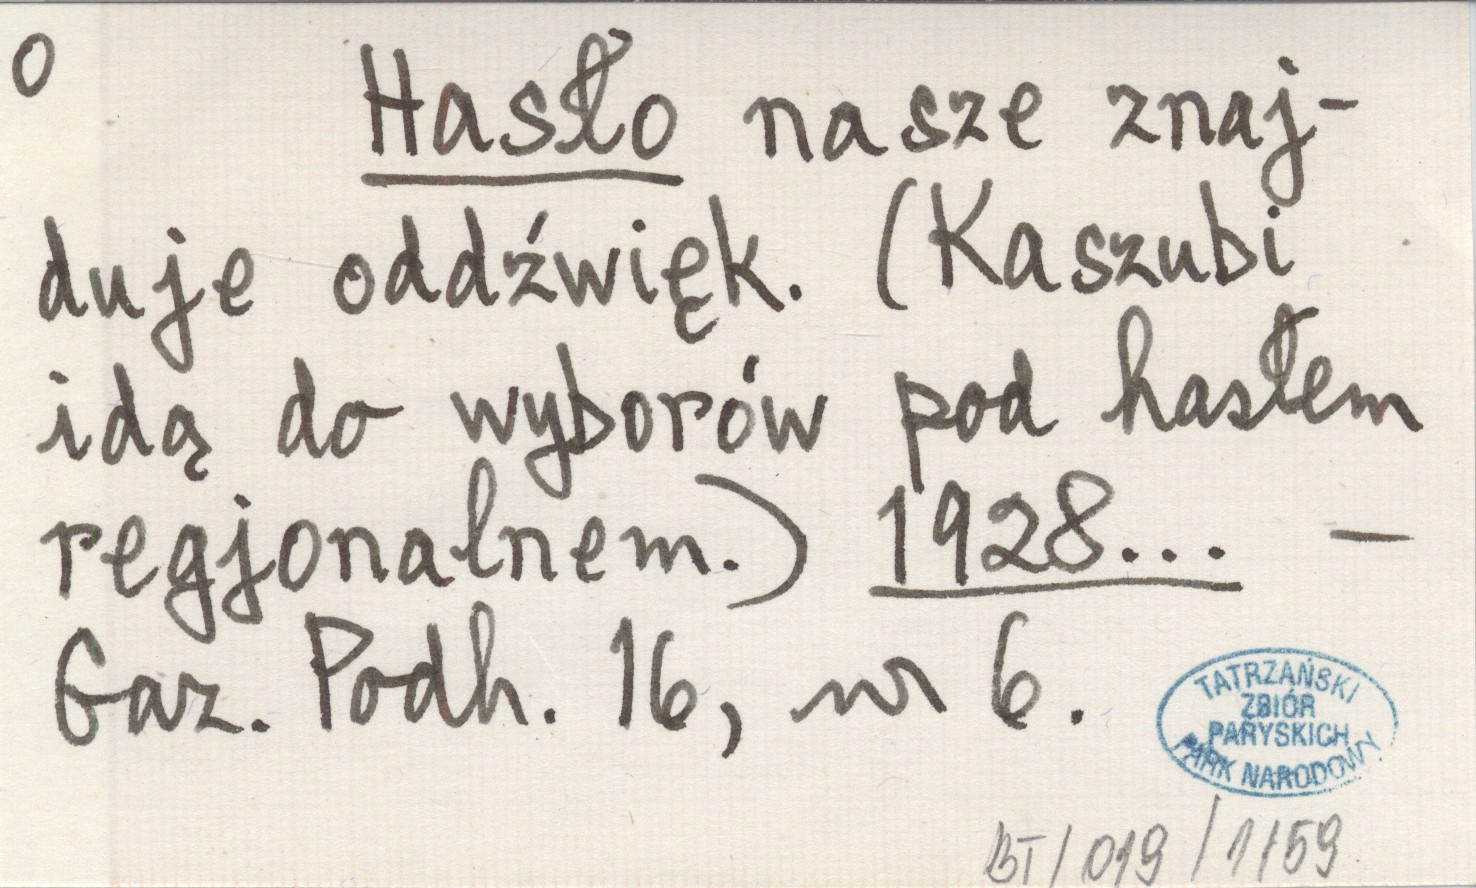 O Hasło nasze znaj-
duje oddźwięk. (Kaszubi
idą do wyborów pod hasłem
regjonalnem.) 1928... —
Gaz. Podh. 16, nr 6.
TATRZAŃSKI
ZBIÓR
PARYSKICH
PARK NARODOWY
BT/019/1/59